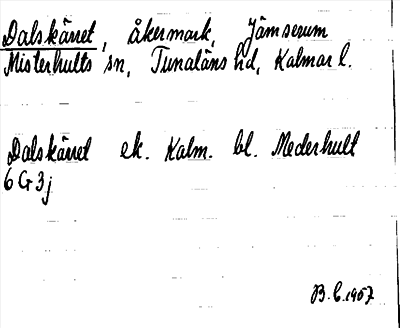 Dalskärret, åkermark, Jämserum
Misterhults sn, Tunaläns hd, Kalmar l.
Dalskärret ek. Kalm. bl. Mederhult
6 G 3j
B.C. 1957